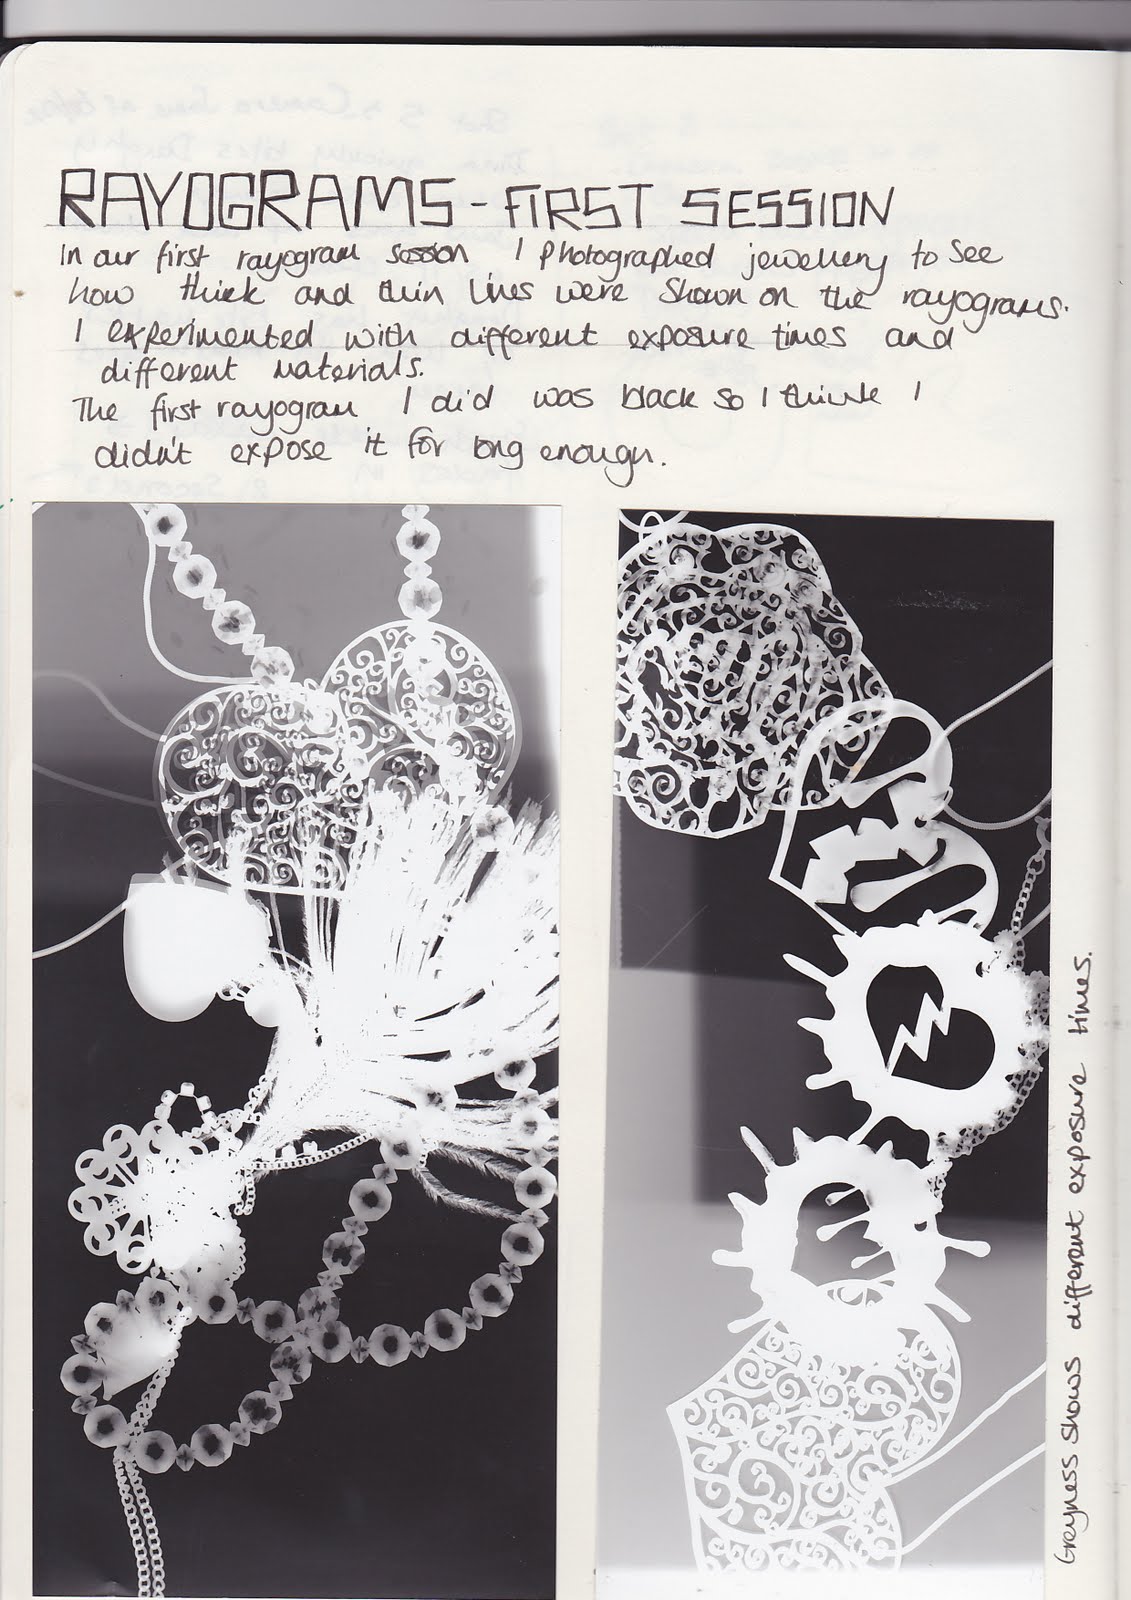 RAYOGRAMS - FIRST SESSION
In our first rayogram session I photographed jewellery to see
how thick and thin lines were shown on the rayograms.
I experimented with different exposure times and
different materials.
The first rayogram I did was black so I think I
didn't expose it for long enough.
Greyness shows different exposure times.